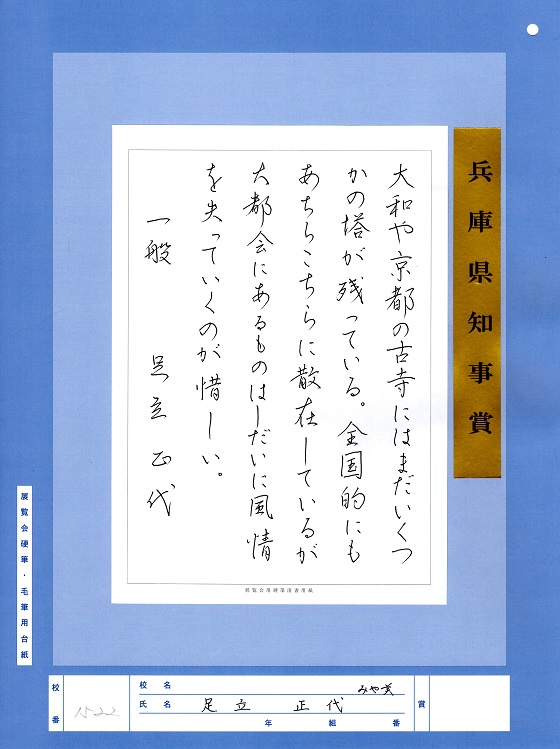 兵庫県知事賞
大和や京都の古寺にはまだいくつ
かの塔が残っている。全国的にも
あちらこちらに散在しているが
大都会にあるものはしだいに風情
を失っていくのが惜しい。
一般 足立正代
展覧会用硬筆清書用紙
展覧会硬筆・毛筆用台紙
校番 1522
校名 みや美
氏名 足立 正代
年 組 番
賞